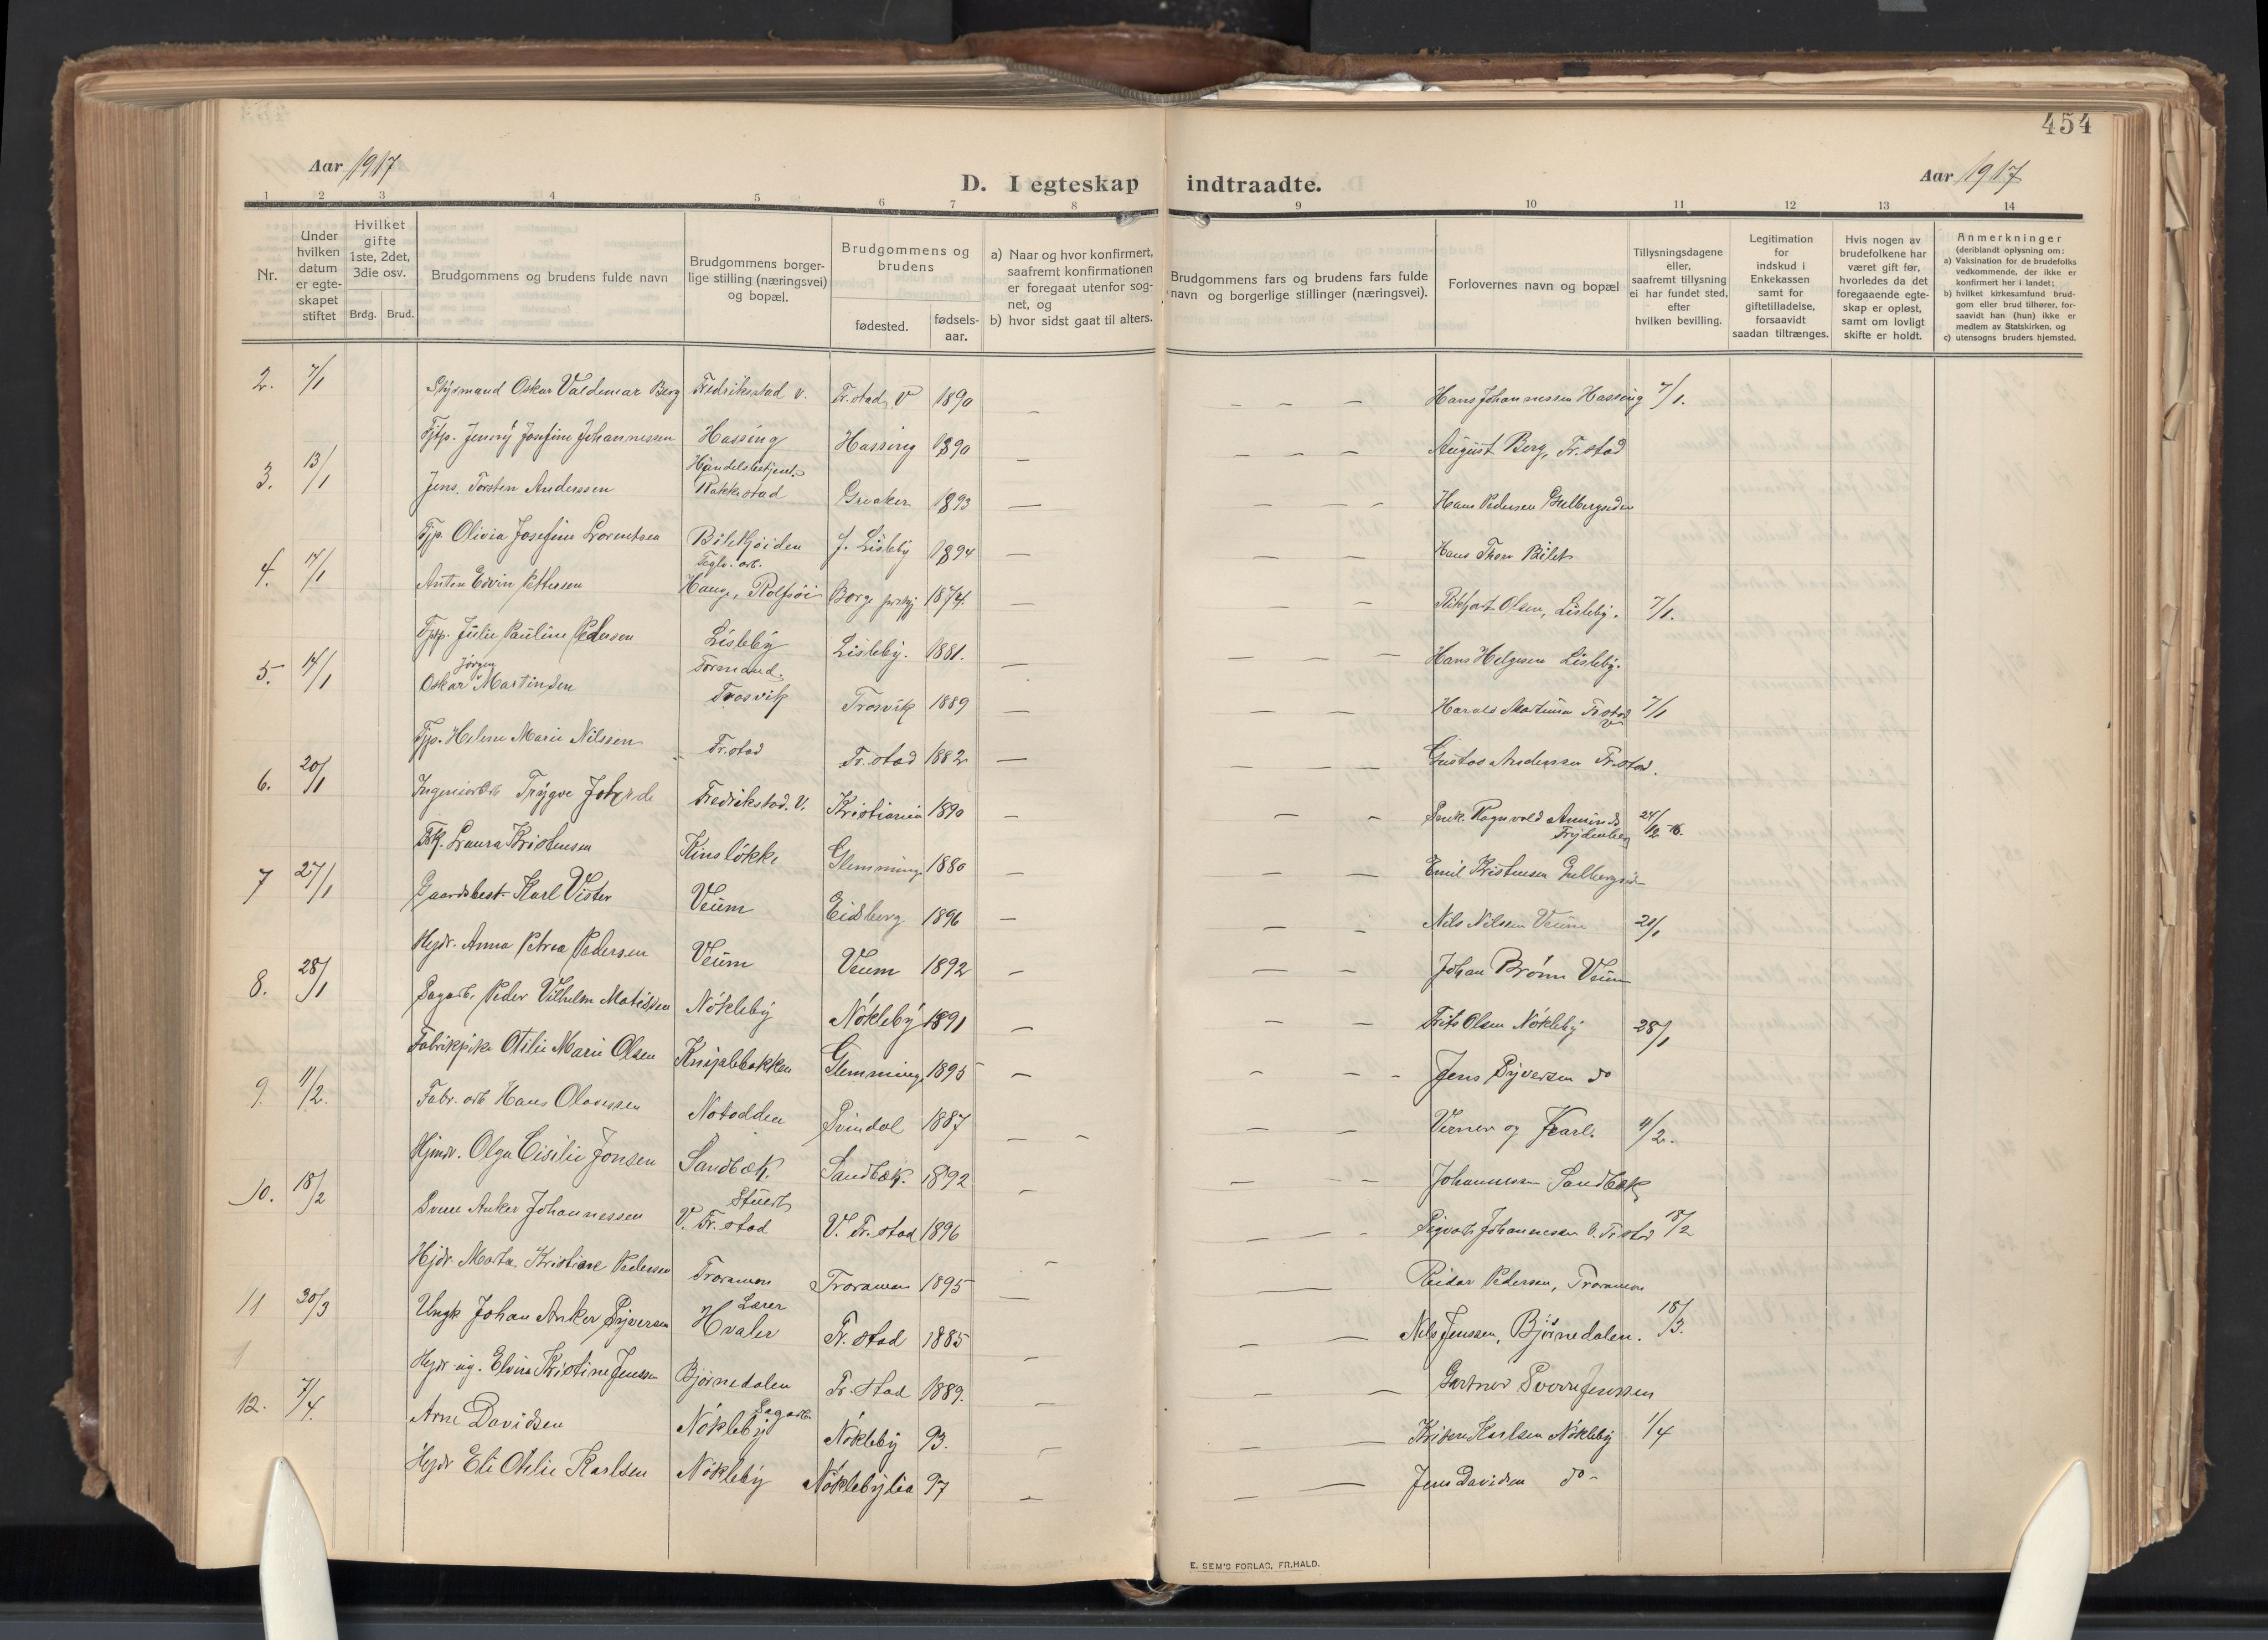 454
Aar 1917
D. I egteskap indtraadte.
Aar 1917
1 2 3 4 5 6 7 8 9 10 11 12 13 14
Nr.
Under hvilken datum er egte-skapet stiftet
Hvilket gifte 1ste, 2det, 3die osv.
Brdg. Brud.
Brudgommens og brudens fulde navn
Brudgommens borger-lige stilling (næringsvei) og bopæl.
Brudgommens og brudens
fødested.
fødsels-aar.
a) Naar og hvor konfirmert, saafremt konfirmationen er foregaat utenfor sog-net, og
b) hvor sidst gaat til alters.
Brudgommens fars og brudens fars fulde navn og borgerlige stillinger (næringsvei).
Forlovernes navn og bopæl
Tillysningsdagene eller, saafremt tillysning ei har fundet sted, efter hvilken bevilling.
Legitimation for indskud i Enkekassen samt for giftetilladelse, forsaavidt saadan tiltrænges.
Hvis nogen av brudefolkene har været gift før, hvorledes da det foregaaende egte-skap er opløst, samt om lovligt skifte er holdt.
Anmerkninger
(deriblandt oplysning om:
a) Vaksination for de brudefolks vedkommende, der ikke er konfirmert her i landet;
b) hvilket kirkesamfund brud-gom eller brud tilhører, for-saavidt han (hun) ikke er medlem av Statskirken, og
c) utensogns bruders hjemsted.
2. 7/1 Styrmand Oskar Valdemar Berg Fredriksstad V. Fr.stad V 1890 — — — — Hans Johannessen Hassing 7/1.
Tjp. Jenny Josefine Johannessen Hassing Hassing 1890 — — — — August Berg, Fr.stad
3. 13/1 Jens Torsten Anderssen Handelsbetjent. Rakkestad Greaker 1893 — — — — Hans Pedersen
Tjp. Olivia Josefine Lorentsen J. Lisleby 1894 — — — Hans Thon
4. 17/1 Anton Edvin Pettersen Teglv. arb. Hauge, Rolfsøi Borge 1874. — — — Olsen, Lisleby. 7/1.
Tjp. Julie Pauline Pedersen Lisleby Lisleby. 1881. — — — — Hans Helgesen Lisleby.
5. 14/1 Oskar Jørgen Martinsen Formand. Trosvik Trosvik 1889 — — — Harald Martinsen Fr.stad V 7/1
Tjp. Helene Marie Nilssen Fr.stad Fr.stad 1882 — — — — Gustav Andersen Fr.stad.
6. 20/1 Trygve Fredrikstad. V. Kristiania 1890 — — — Ragnvold
Laura Kristensen Kinsløkke Glemminge 1880 — — — Emil Kristensen
7 27/1 Gaardsbest. Karl Vister Veum Eidsberg 1896 — — — Nils Nilsen Veum 21/1
Hjdr. Anna Petrea Pedersen Veum Veum 1892 — — — Johan Brønn Veum
8. 28/1 Sagarb. Peder Vilhelm Matissen Nøkleby Nøkleby 1891 — — — Frits Olsen Nøkleby 28/1
Fabrikpike Otilie Marie Olsen Knipplebakken Glemminge 1895 — — — — Jens Syversen do
9. 11/2. Fabr. arb Hans Olaussen Notodden Svindal 1887 — — — — Verner og Karl. 4/2.
Hjmdr. Olga Cisilie Jonsen Sandbæk. Sandbæk. 1892 — — — — Johannessen Sandbæk
10. 18/2 Svene Anker Johannessen Stuert V. Fr.stad V. Fr.stad 1896 — — — Sigvart Johannessen V. Fr.stad 18/2
Hjdr. Marta Kristiane Pedersen Traramen Traramen 1895 — — — Reidar Pedersen, Traramen
11 30/3 Ungk Johan Anker Syversen Lærer Hvaler Fr. stad 1885 — — Nils Jenssen, Bjørnedalen. 18/3.
Hjdr. ug. Elvina Kristine Jenssen Bjørnedalen Fr. stad 1889. — — — Gartner Jenssen
12. 7/4. Arne Davidsen Sagarb. Nøkleby Nøkleby 93. — — — Karlsen Nøkleby 1/4
Hjdr Eli Otilie Karlsen Nøkleby Nøklebylia 97 — — — Jens Davidsen do -
E. SEM'S FORLAG, FR.HALD.